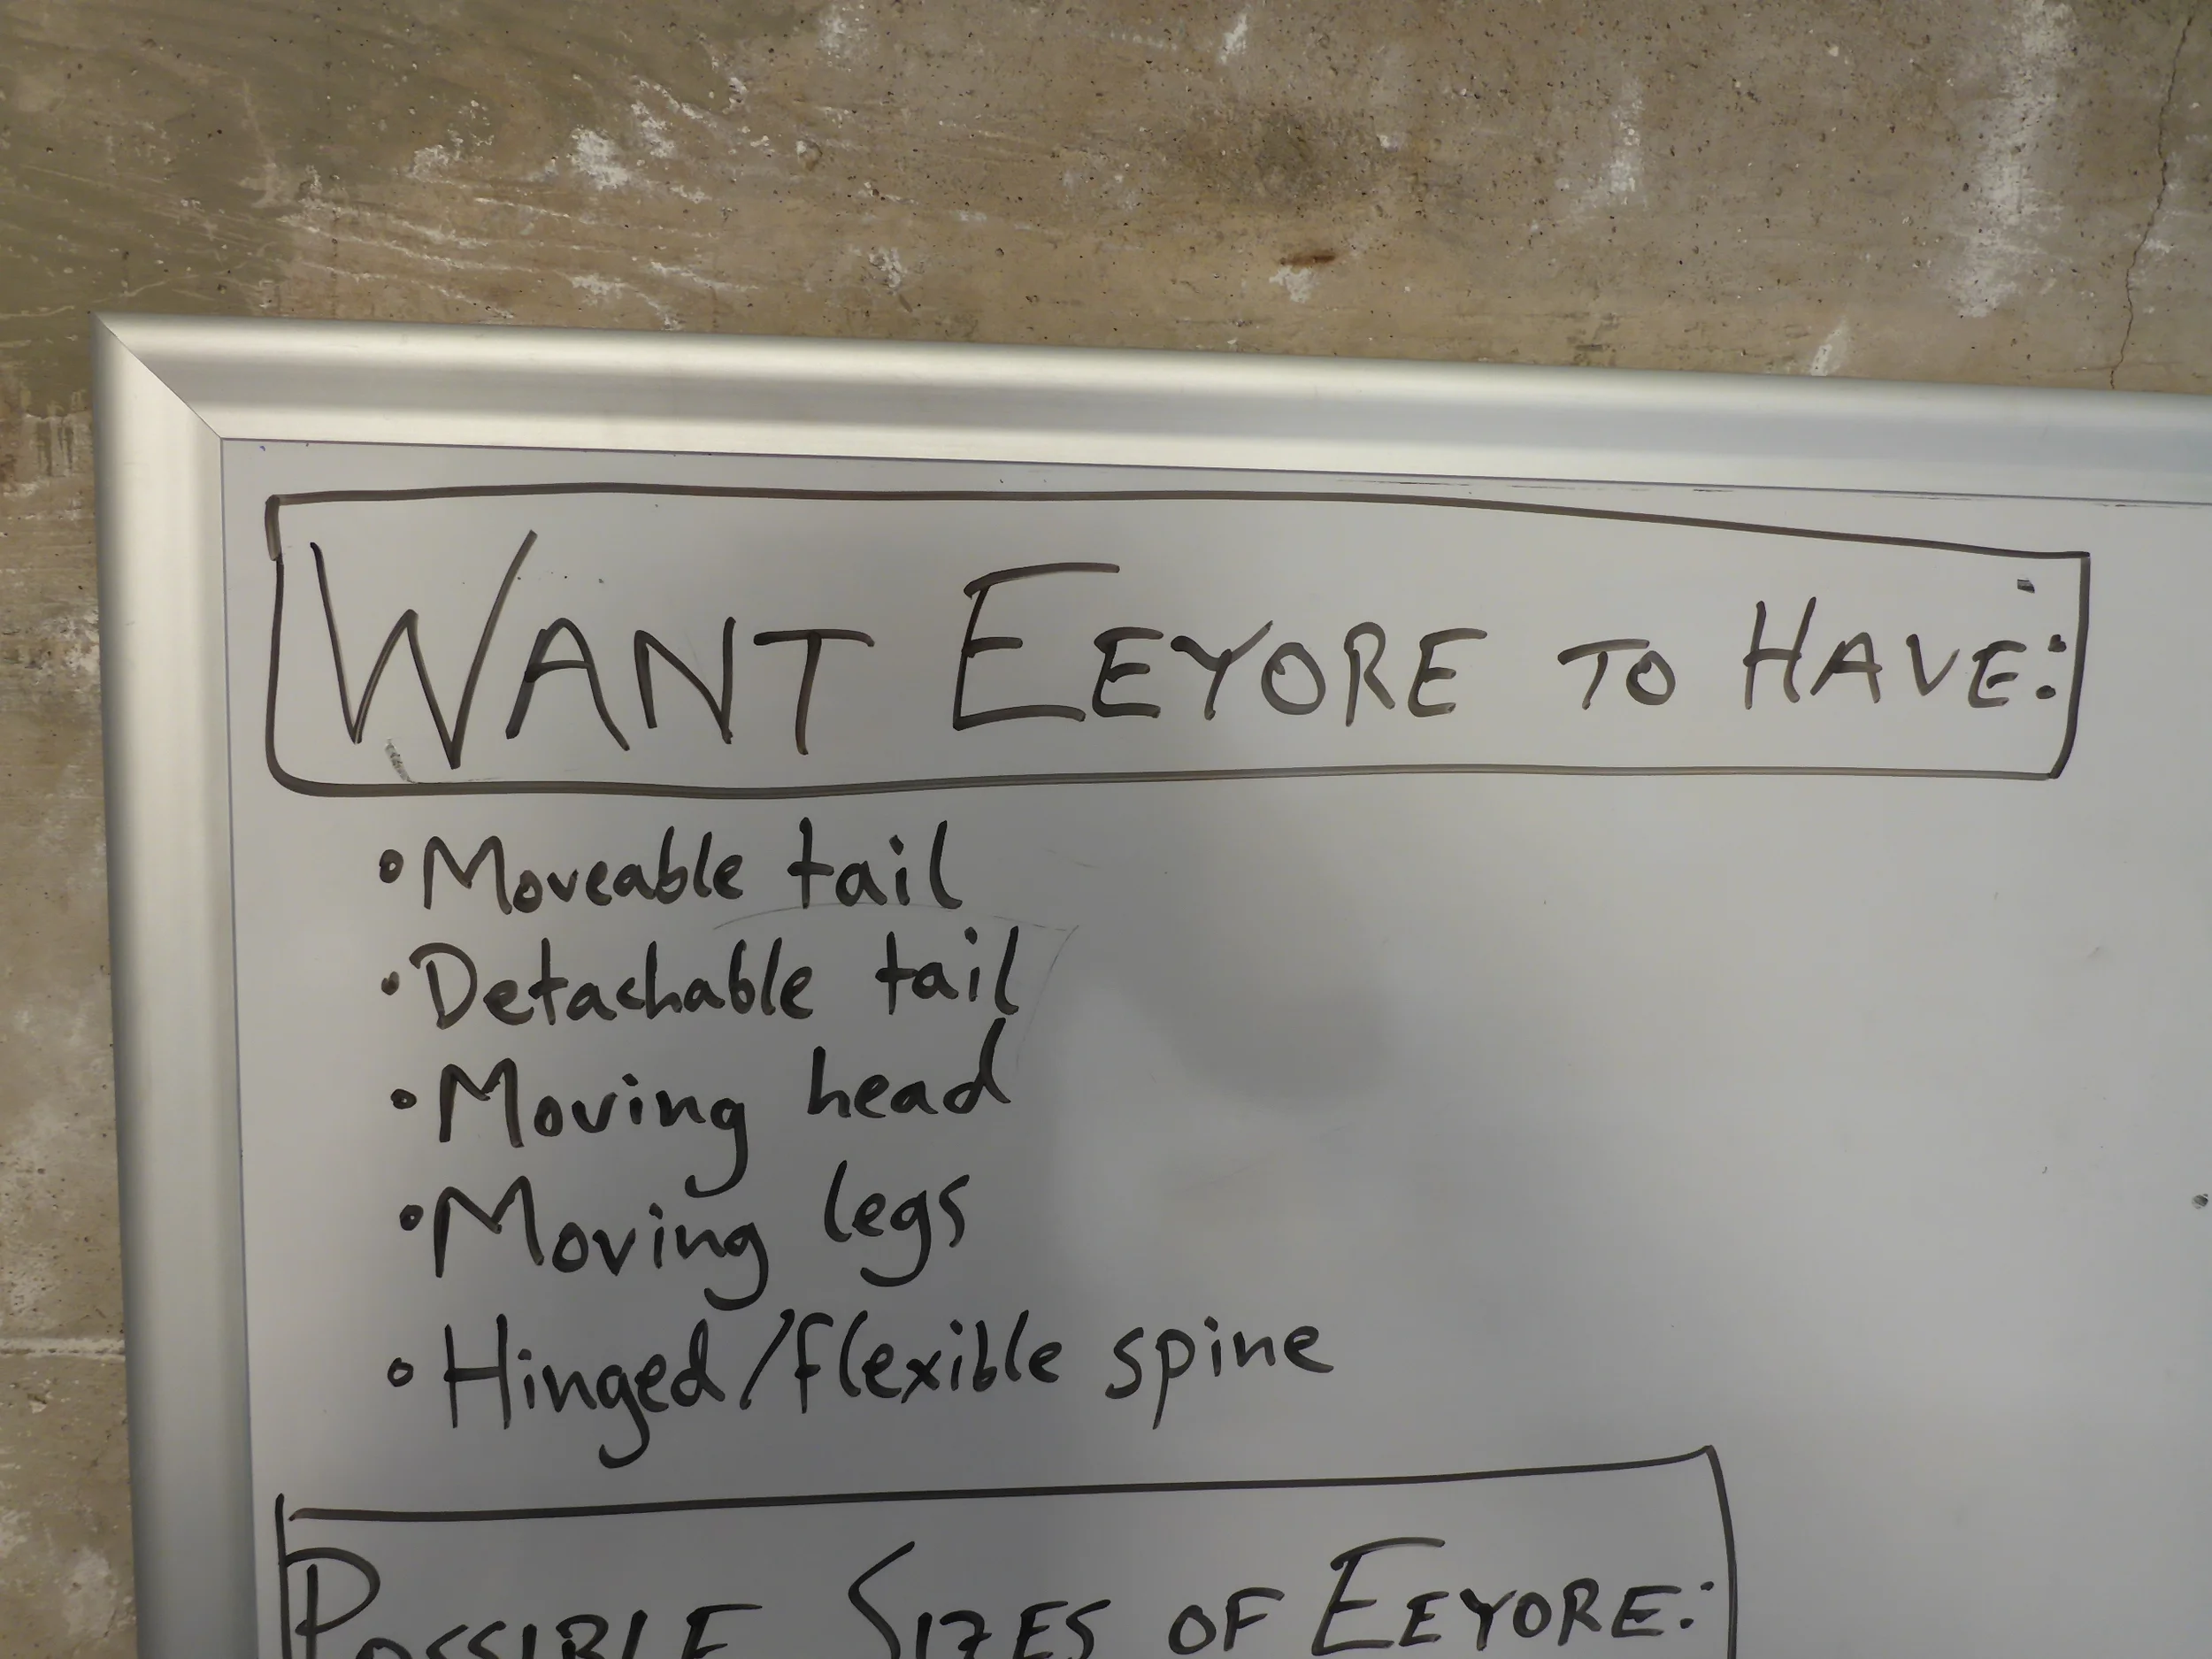 WANT EEYORE TO HAVE:
• Moveable tail
• Detachable tail
• Moving head
• Moving legs
• Hinged/flexible spine
POSSIBLE SIZES OF EEYORE: